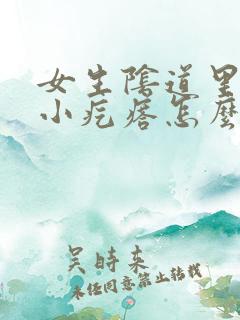 女生陰道里
小疙瘩怎麼
吴時来
未经同意禁止转载